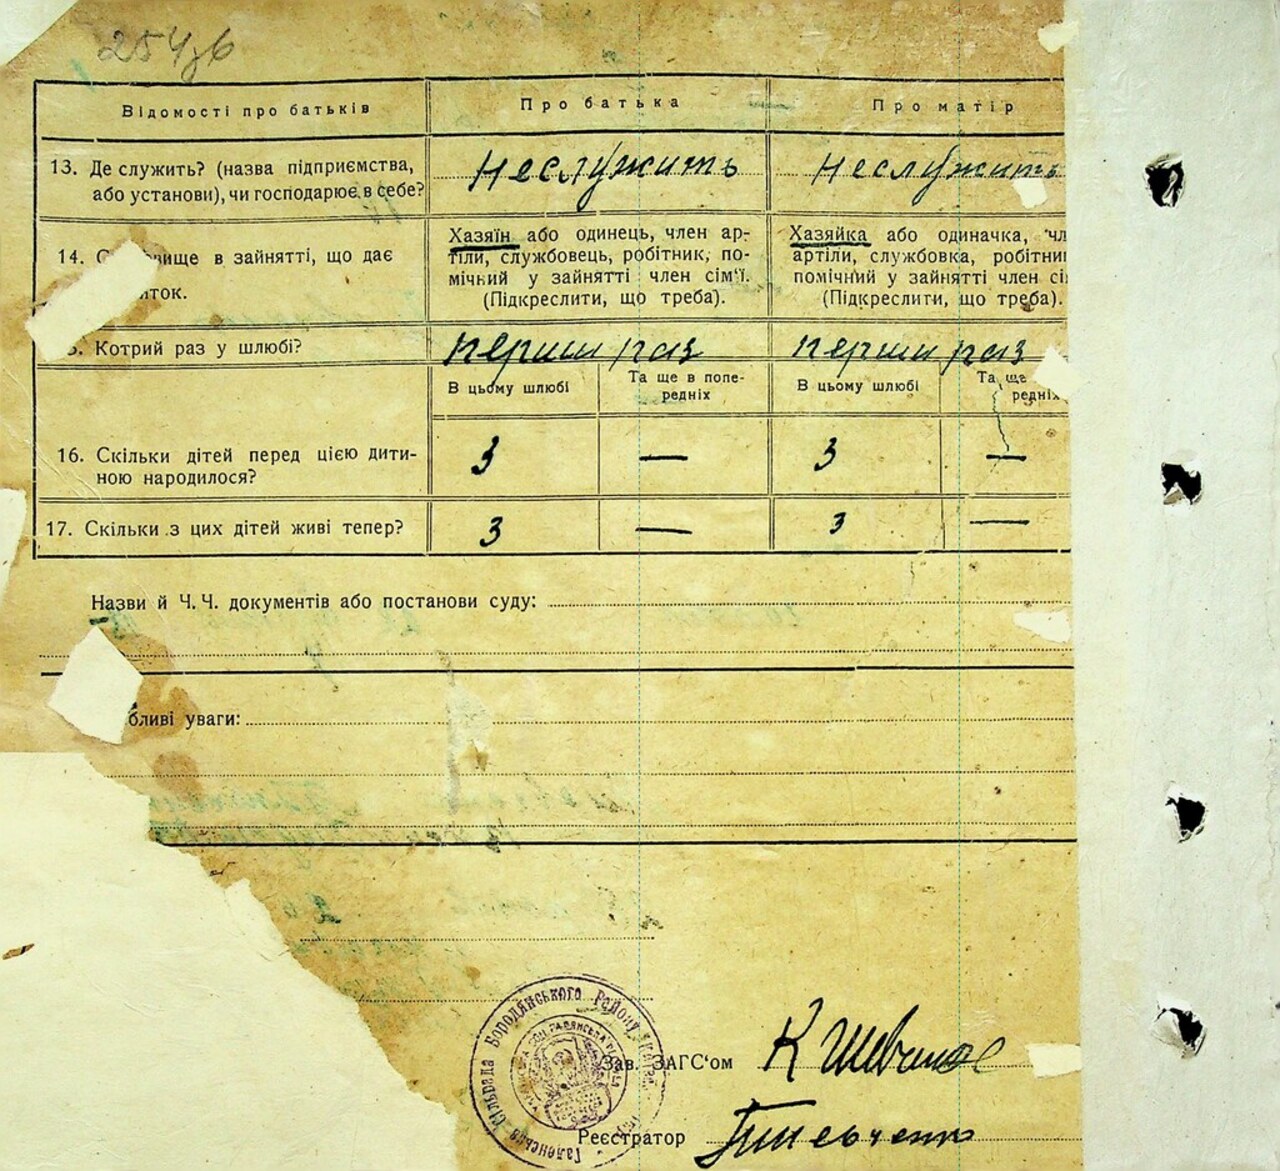 254зв
Відомості про батьків
Про батька
Про матір
13. Де служить? (назва підприємства,
або установи), чи господарює в себе?
Неслужить
Неслужить
14. С вище в зайнятті, що дає
иток.
Хазяїн або одинець, член ар-
тіли, службовець, робітник, по-
мічний у зайнятті член сім'ї.
(Підкреслити, що треба).
Хазяйка або одиначка, чл
артіли, службовка, робітни
помічний у зайнятті член сі
(Підкреслити, що треба).
5. Котрий раз у шлюбі?
перши раз
перши раз
В цьому шлюбі
Та ще в попе-
редніх
В цьому шлюбі
Та ще
редніх
16. Скільки дітей перед цією дити-
ною народилося?
3
—
3
—
17. Скільки з цих дітей живі тепер?
3
—
3
—
Назви й Ч. Ч. документів або постанови суду:
бливі уваги:
Сільрада Бородянського Району
Зав. ЗАГС'ом
К Шевченко
Реєстратор
Шевченко